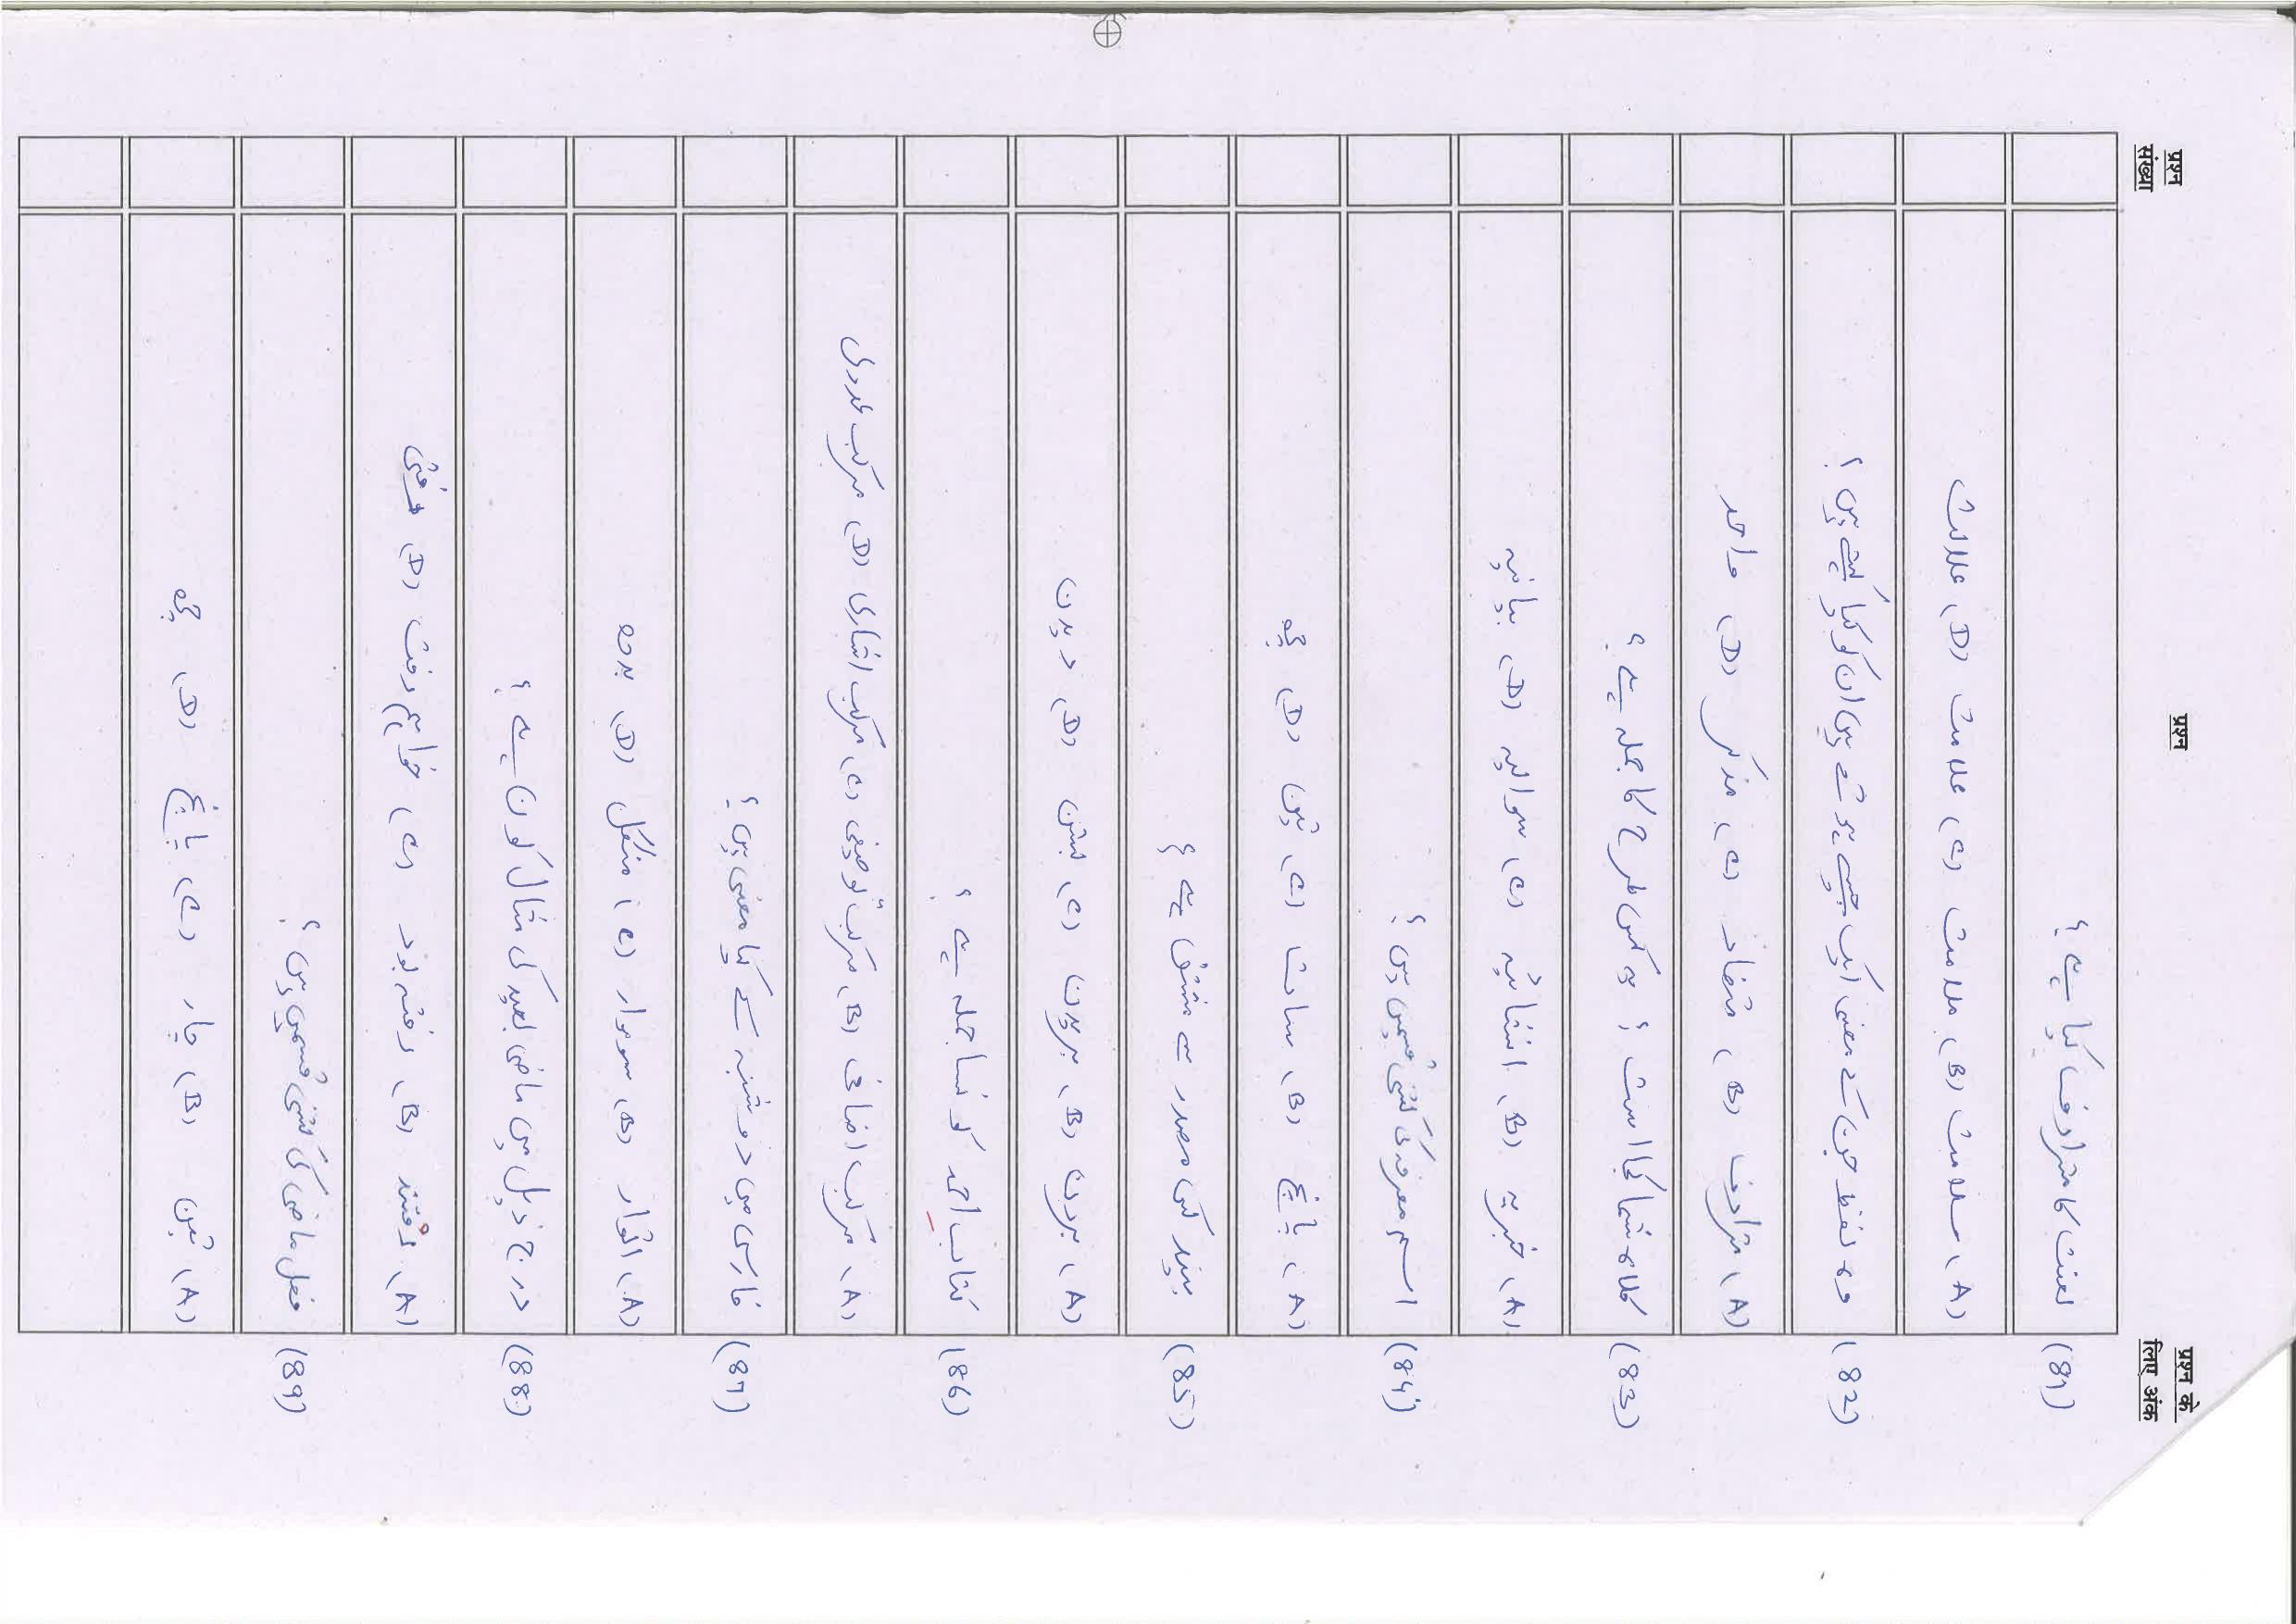 प्रश्न संख्या
प्रश्न
प्रश्न के लिए अंक
(81) لعنت کا مترادف کیا ہے ؟
(A) سلامت (B) ملامت (C) علامت (D) علالت
(82) وہ لفظ جن کے معنی ایک جیسے ہوتے ہیں ان کو کیا کہتے ہیں ؟
(A) مترادف (B) متضاد (C) مذکر (D) واحد
(83) کلاہ شما کجا است ؟ یہ کس طرح کا جملہ ہے ؟
(A) خبریہ (B) انشائیہ (C) سوالیہ (D) بیانیہ
(84) اسم معرفہ کی کتنی قسمیں ہیں ؟
(A) پانچ (B) سات (C) تین (D) چھ
(85) بیند کس مصدر سے مشتق ہے ؟
(A) بردن (B) بریدن (C) بستن (D) دیدن
(86) کتاب احمد کونسا جملہ ہے ؟
(A) مرکب اضافی (B) مرکب توصیفی (C) مرکب اشاری (D) مرکب عددی
(87) فارسی میں دو شنبہ کے کیا معنی ہیں ؟
(A) اتوار (B) سوموار (C) منگل (D) بدھ
(88) درج ذیل میں ماضی بعید کی مثال کون ہے ؟
(A) رفتند (B) رفتہ بود (C) خواہم رفت (D) رفتی
(89) فعل ماضی کی کتنی قسمیں ہیں ؟
(A) تین (B) چار (C) پانچ (D) چھ